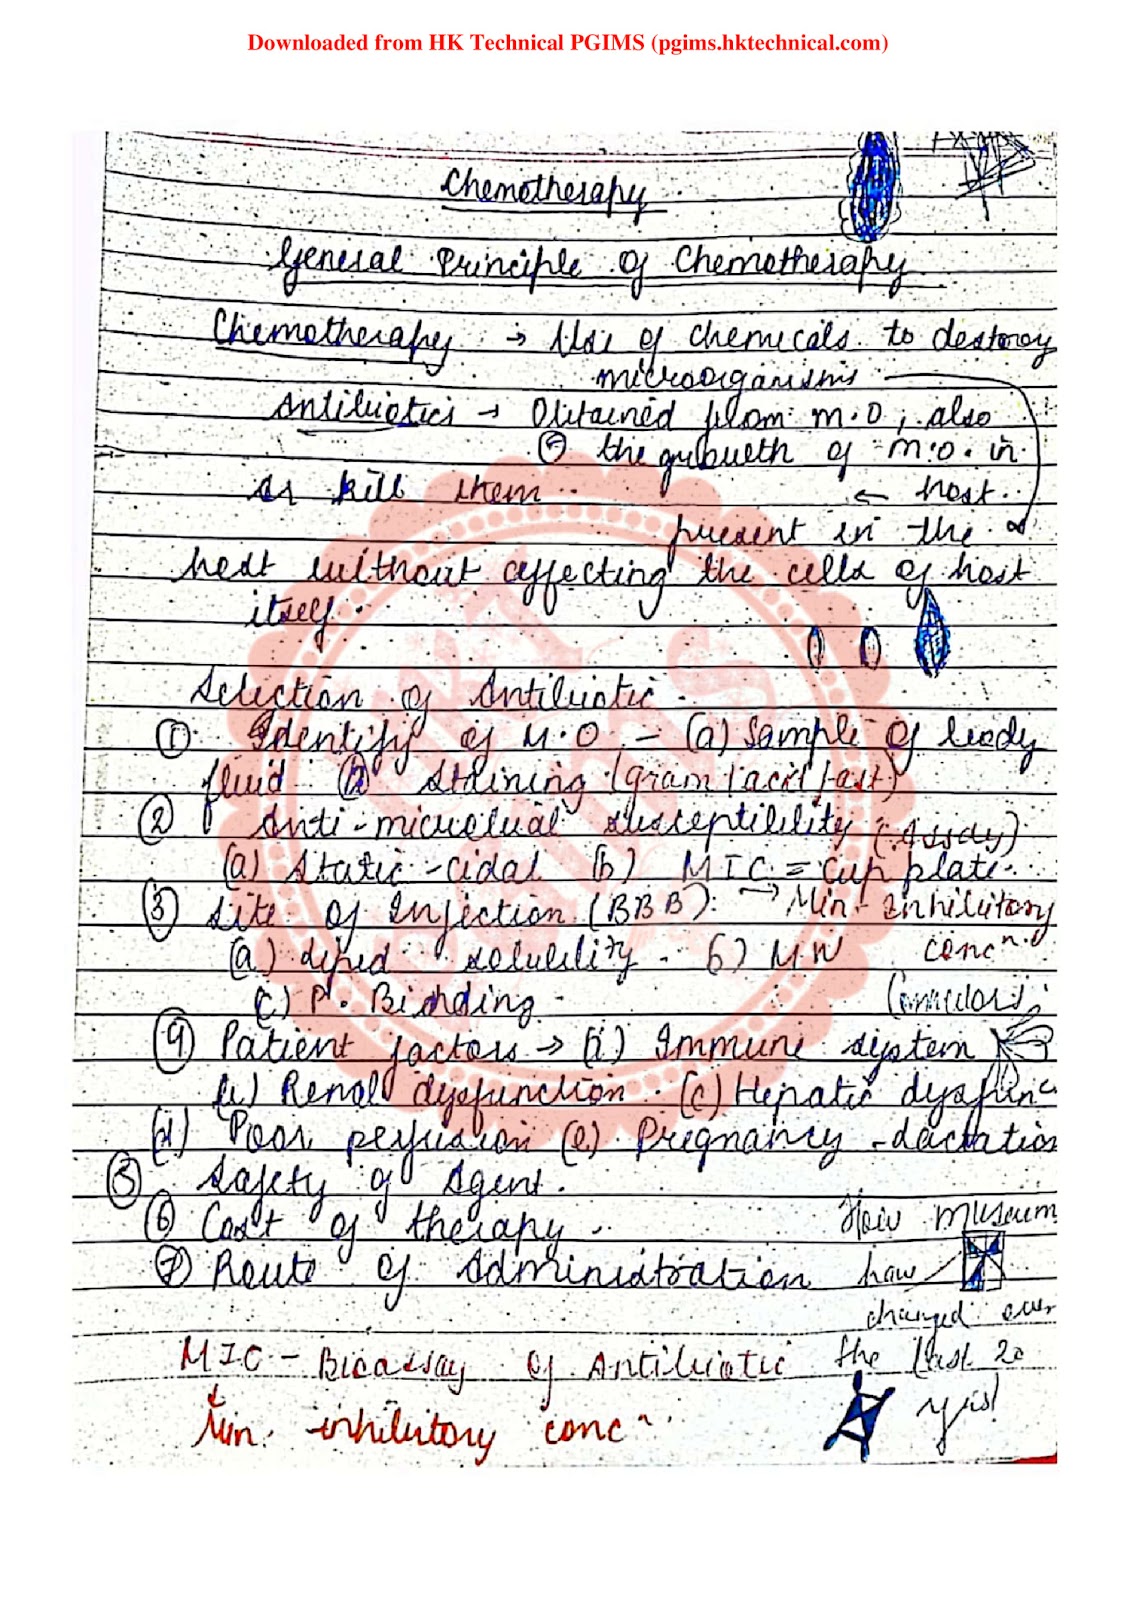 Downloaded from HK Technical PGIMS (pgims.hktechnical.com)
Chemotherapy
General Principle of Chemotherapy
Chemotherapy → Use of chemicals to destoroy
microorganisms
Antibiotics → Obtained from m.o, also
⊖ the growth of m.o. in
or kill them ← host.
present in the
host without affecting the cells of host
itself.
Selection of Antibiotic
① Identify of M.O. - (a) Sample of body
fluid (b) Staining (gram/acid fast)
② Anti-microbial susceptibility (Assay)
(a) Static-cidal (b) MIC = Cup plate.
③ Site of Injection (BBB): → Min. Inhibitory
(a) Lipid solubility. b) MW concⁿ.
(c) P. Binding
④ Patient factors → (a) Immune system
(b) Renal dysfunction. (c) Hepatic dysfunc
(d) Poor perfusion (e) Pregnancy - Lactation
⑤ Safety of Agent.
⑥ Cost of therapy. How museum
⑦ Route of Administration have
changed over
MIC - Bioassay of Antibiotic the last 20
Min. inhibitory concⁿ.